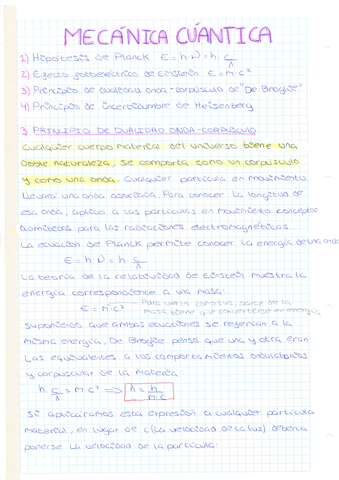 MECÁNICA CUÁNTICA
1) Hipótesis de Planck E = h·ν = h· c/λ
2) Efecto fotoeléctrico de Einstein E = m·c²
3) Principio de dualidad onda-corpúsculo de "De Broglie"
4) Principio de incertidumbre de Heisenberg
3 PRINCIPIO DE DUALIDAD ONDA-CORPÚSCULO
Cualquier cuerpo material del universo tiene una
doble naturaleza, se comporta como un corpúsculo
y como una onda. Cualquier partícula en movimiento
llevará una onda asociada. Para conocer la longitud de
esa onda, aplicó a las partículas en movimiento conceptos
admitidos para las radiaciones electromagnéticas.
La ecuación de Planck permite conocer la energía de una onda
E = h·ν = h· c/λ
La teoría de la relatividad de Einstein muestra la
energía correspondiente a una masa:
E = m·c² Para verla con luz, parte de la
masa tiene que convertirse en energía
Suponiendo que ambas ecuaciones se referían a la
misma energía, De Broglie pensó que una y otra eran
las equivalentes a los comportamientos ondulatorios
y corpuscular de la materia
h· c/λ = m·c² ⟹ λ = h/m·c
Si aplicáramos esta expresión a cualquier partícula
material, en lugar de c (la velocidad de la luz) debería
ponerse la velocidad de la partícula: